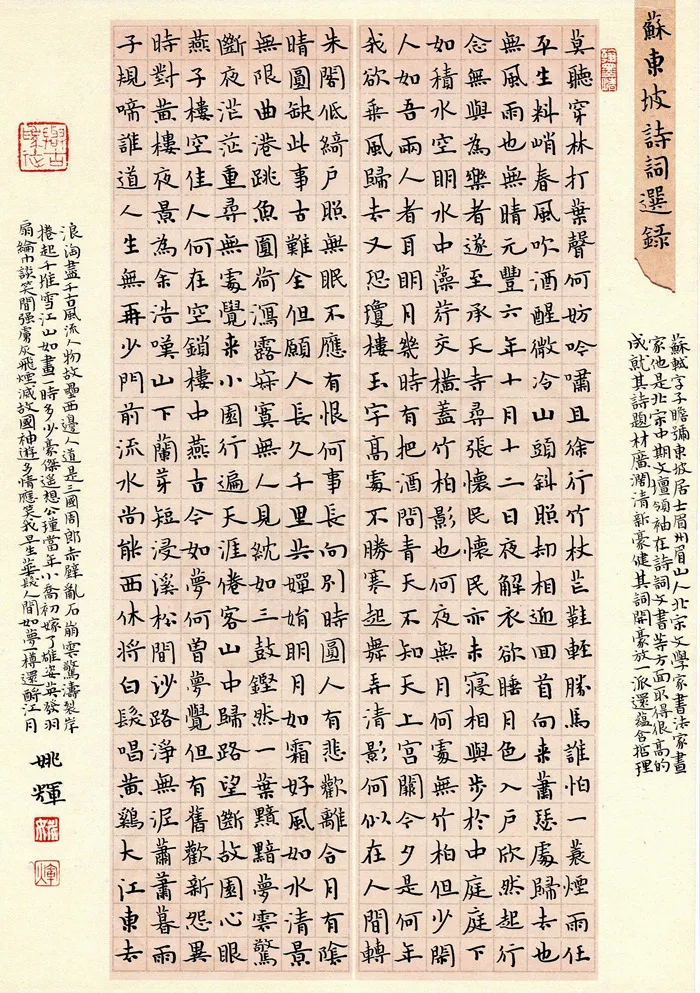 蘇東坡詩詞選錄
蘇軾字子瞻彌東坡居士眉州眉山人北宋文學家書法家畫
家他是北宋中期文壇領袖在詩詞文書等方面取得很高的
成就其詩題材廣闊清新豪健其詞開豪放一派還蘊含哲理
莫聽穿林打葉聲何妨吟嘯且徐行竹杖芒鞋輕勝馬誰怕一蓑煙雨任
平生料峭春風吹酒醒微冷山頭斜照却相迎回首向来蕭瑟處歸去也
無風雨也無晴元豐六年十月十二日夜解衣欲睡月色入戶欣然起行
念無與為樂者遂至承天寺尋張懷民懷民亦未寢相與步於中庭庭下
如積水空明水中藻荇交橫蓋竹柏影也何夜無月何處無竹柏但少閑
人如吾兩人者耳明月幾時有把酒問青天不知天上宮闕今夕是何年
我欲乘風歸去又恐瓊樓玉宇高處不勝寒起舞弄清影何似在人間轉
朱閣低綺戶照無眠不應有恨何事長向別時圓人有悲歡離合月有陰
晴圓缺此事古難全但願人長久千里共嬋娟明月如霜好風如水清景
無限曲港跳魚圓荷瀉露寂寞無人見紞如三鼓鏗然一葉黯黯夢雲驚
斷夜茫茫重尋無處覺来小園行遍天涯倦客山中歸路望斷故園心眼
燕子樓空佳人何在空鎖樓中燕古今如夢何曾夢覺但有舊歡新怨異
時對黃樓夜景為余浩嘆山下蘭芽短浸溪松間沙路淨無泥蕭蕭暮雨
子規啼誰道人生無再少門前流水尚能西休將白髮唱黃雞大江東去
浪淘盡千古風流人物故壘西邊人道是三國周郎赤壁亂石崩雲驚濤裂岸
捲起千堆雪江山如畫一時多少豪傑遥想公瑾當年小喬初嫁了雄姿英發羽
扇綸巾談笑間强虜灰飛煙滅故國神遊多情應笑我早生華髮人間如夢一樽還酹江月
姚輝